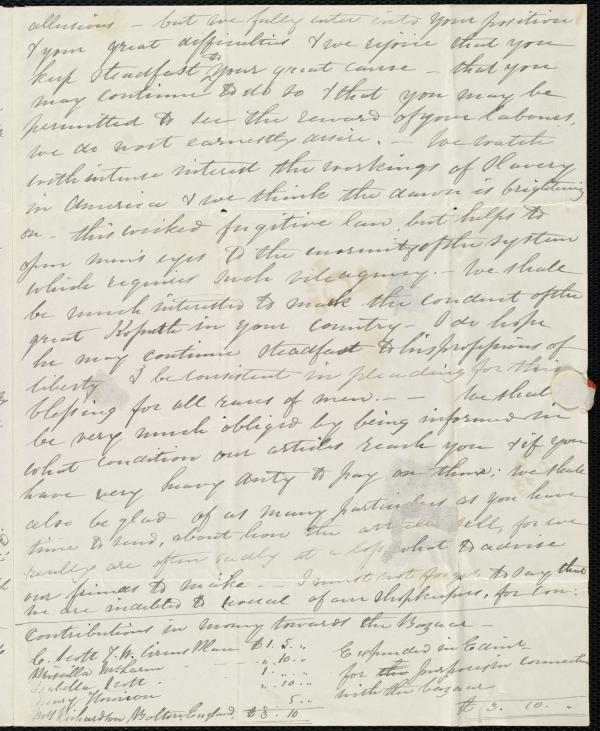 allusions - but we fully enter into your position
& your great difficulties & we rejoice that you
keep steadfast to your great cause - that you
may continue to do so & that you may be
permitted to see the reward of your labours,
we do most earnestly desire. - We watch
with intense interest the workings of Slavery
in America & we think the dawn is brightening
on - this wicked fugitive law but helps to
open men's eyes to the enormity of the system
which requires such villainy. - We shall
be much interested to mark the conduct of the
great Kossuth in your country - I do hope
he may continue steadfast to his professions of
liberty & be consistent in pleading for this
blessing for all races of men. - - We shall
be very much obliged by being informed in
what condition our articles reach you & if you
have very heavy duty to pay on them; we shall
also be glad of as many particulars as you have
time to send, about how the articles sell, for we
really are often sadly at a loss what to advise
our friends to make. - - I must not forget to say that
we are indebted to several of our shopkeepers, for con:
Contributions in money towards the Bazaar -
C. Scott
Priscilla McLaren
Isabella Scott
Mary
Richardson, Bolton, England, £3. 10
Expended in Edinr
for purposes in connection
with the bazaar
£3. 10. "